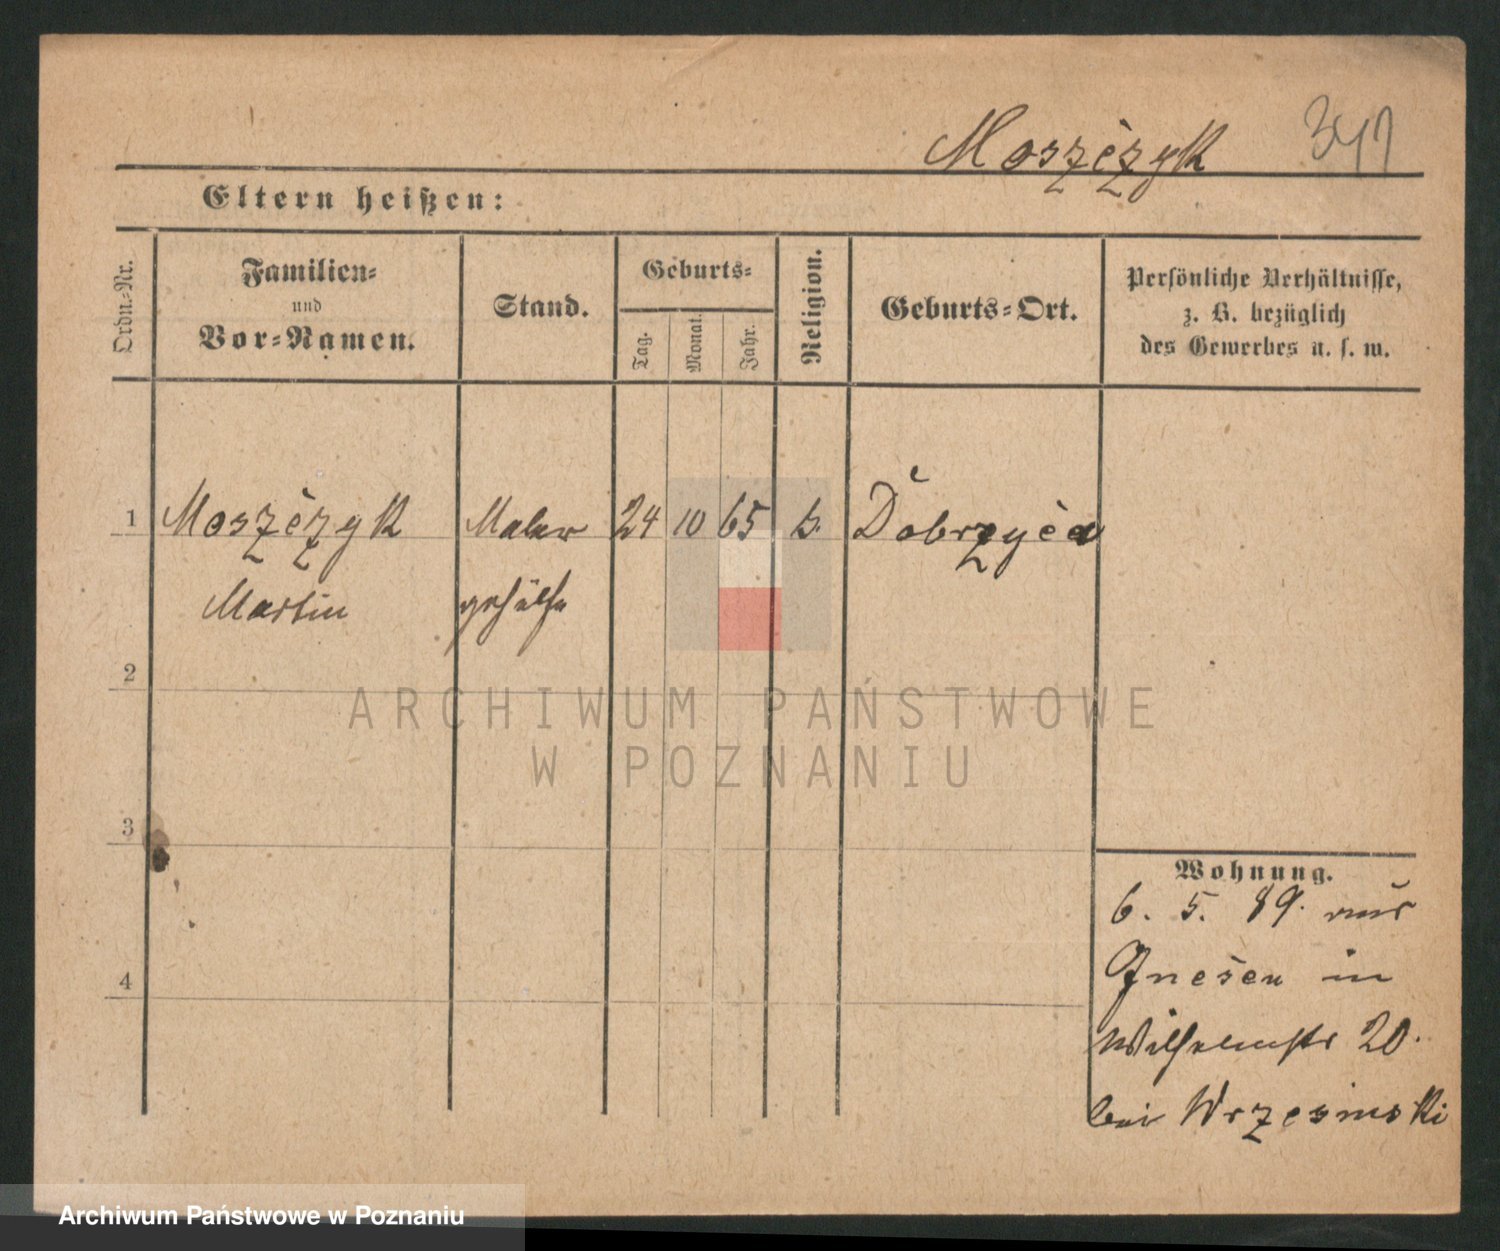 Moszczyk 341
Eltern heißen:
Ordn.-Nr.
Familien-
und
Vor-Namen.
Stand.
Geburts-
Tag.
Monat.
Jahr.
Religion.
Geburts-Ort.
Persönliche Verhältnisse,
z. B. bezüglich
des Gewerbes u. s. w.
1 Moszczyk Maler 24 10 65 Dobrzyca
Martin gehülfe
2
3
4
Wohnung.
6. 5. 89. aus
Gnesen in
Wilhelmstr 20.
bei Wrzesinski
ARCHIWUM PAŃSTWOWE
W POZNANIU
Archiwum Państwowe w Poznaniu